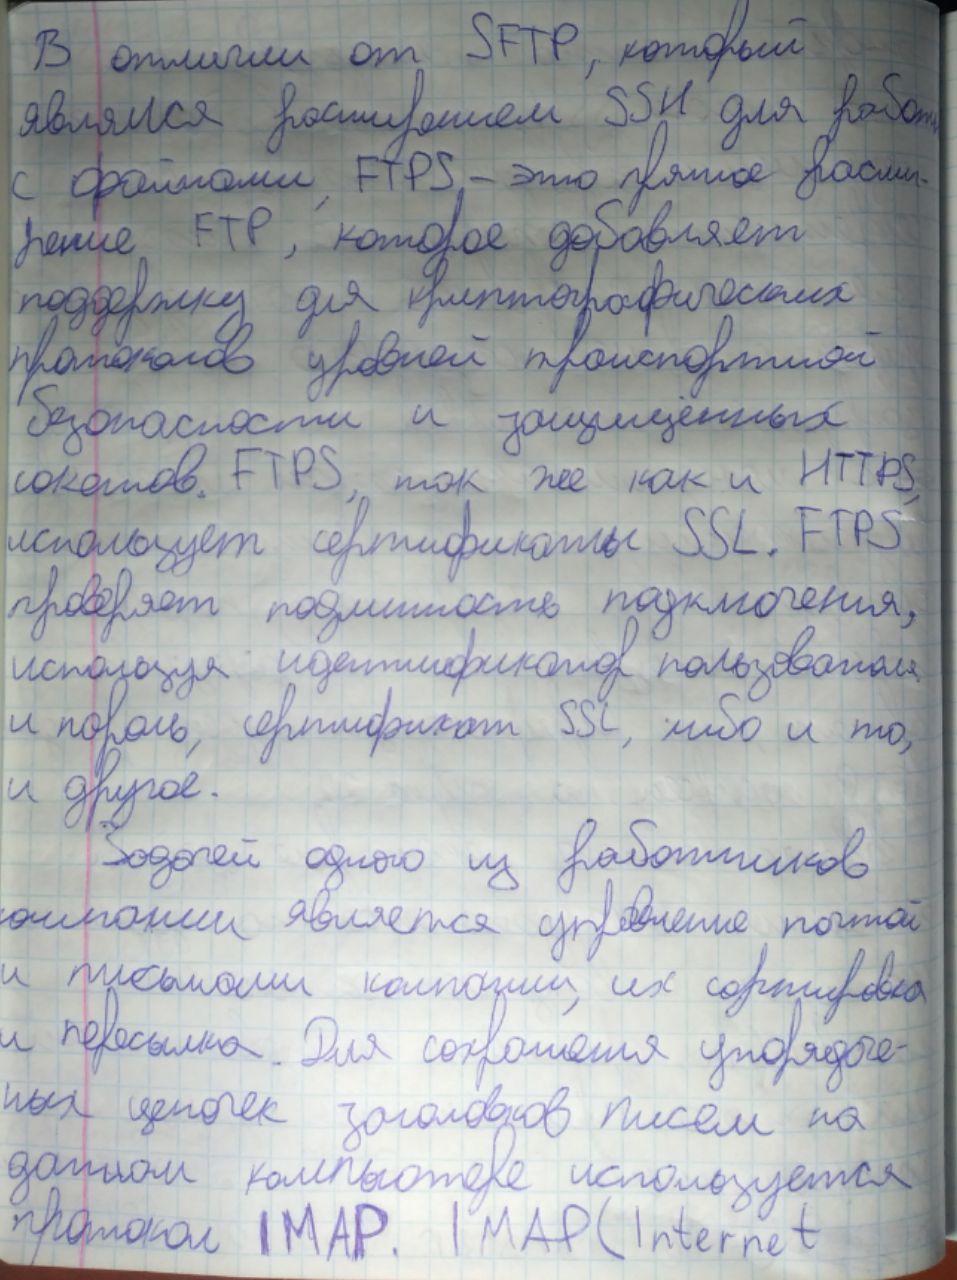 В отличии от SFTP, который
является расширением SSH для работы
с файлами, FTPS – это прямое расши-
рение FTP, которое добавляет
поддержку для криптографических
протоколов уровней транспортной
безопасности и защищённых
сокетов. FTPS, так же как и HTTPS,
использует сертификаты SSL. FTPS
проверяет подлинность подключения,
используя идентификатор пользователя
и пароль, сертификат SSL, либо и то,
и другое.
Задачей одного из работников
компании является управление почтой
и письмами компании, их сортировка
и пересылка. Для сохранения упорядоче-
ных цепочек заголовков писем на
данном компьютере используется
протокол IMAP. IMAP (Internet